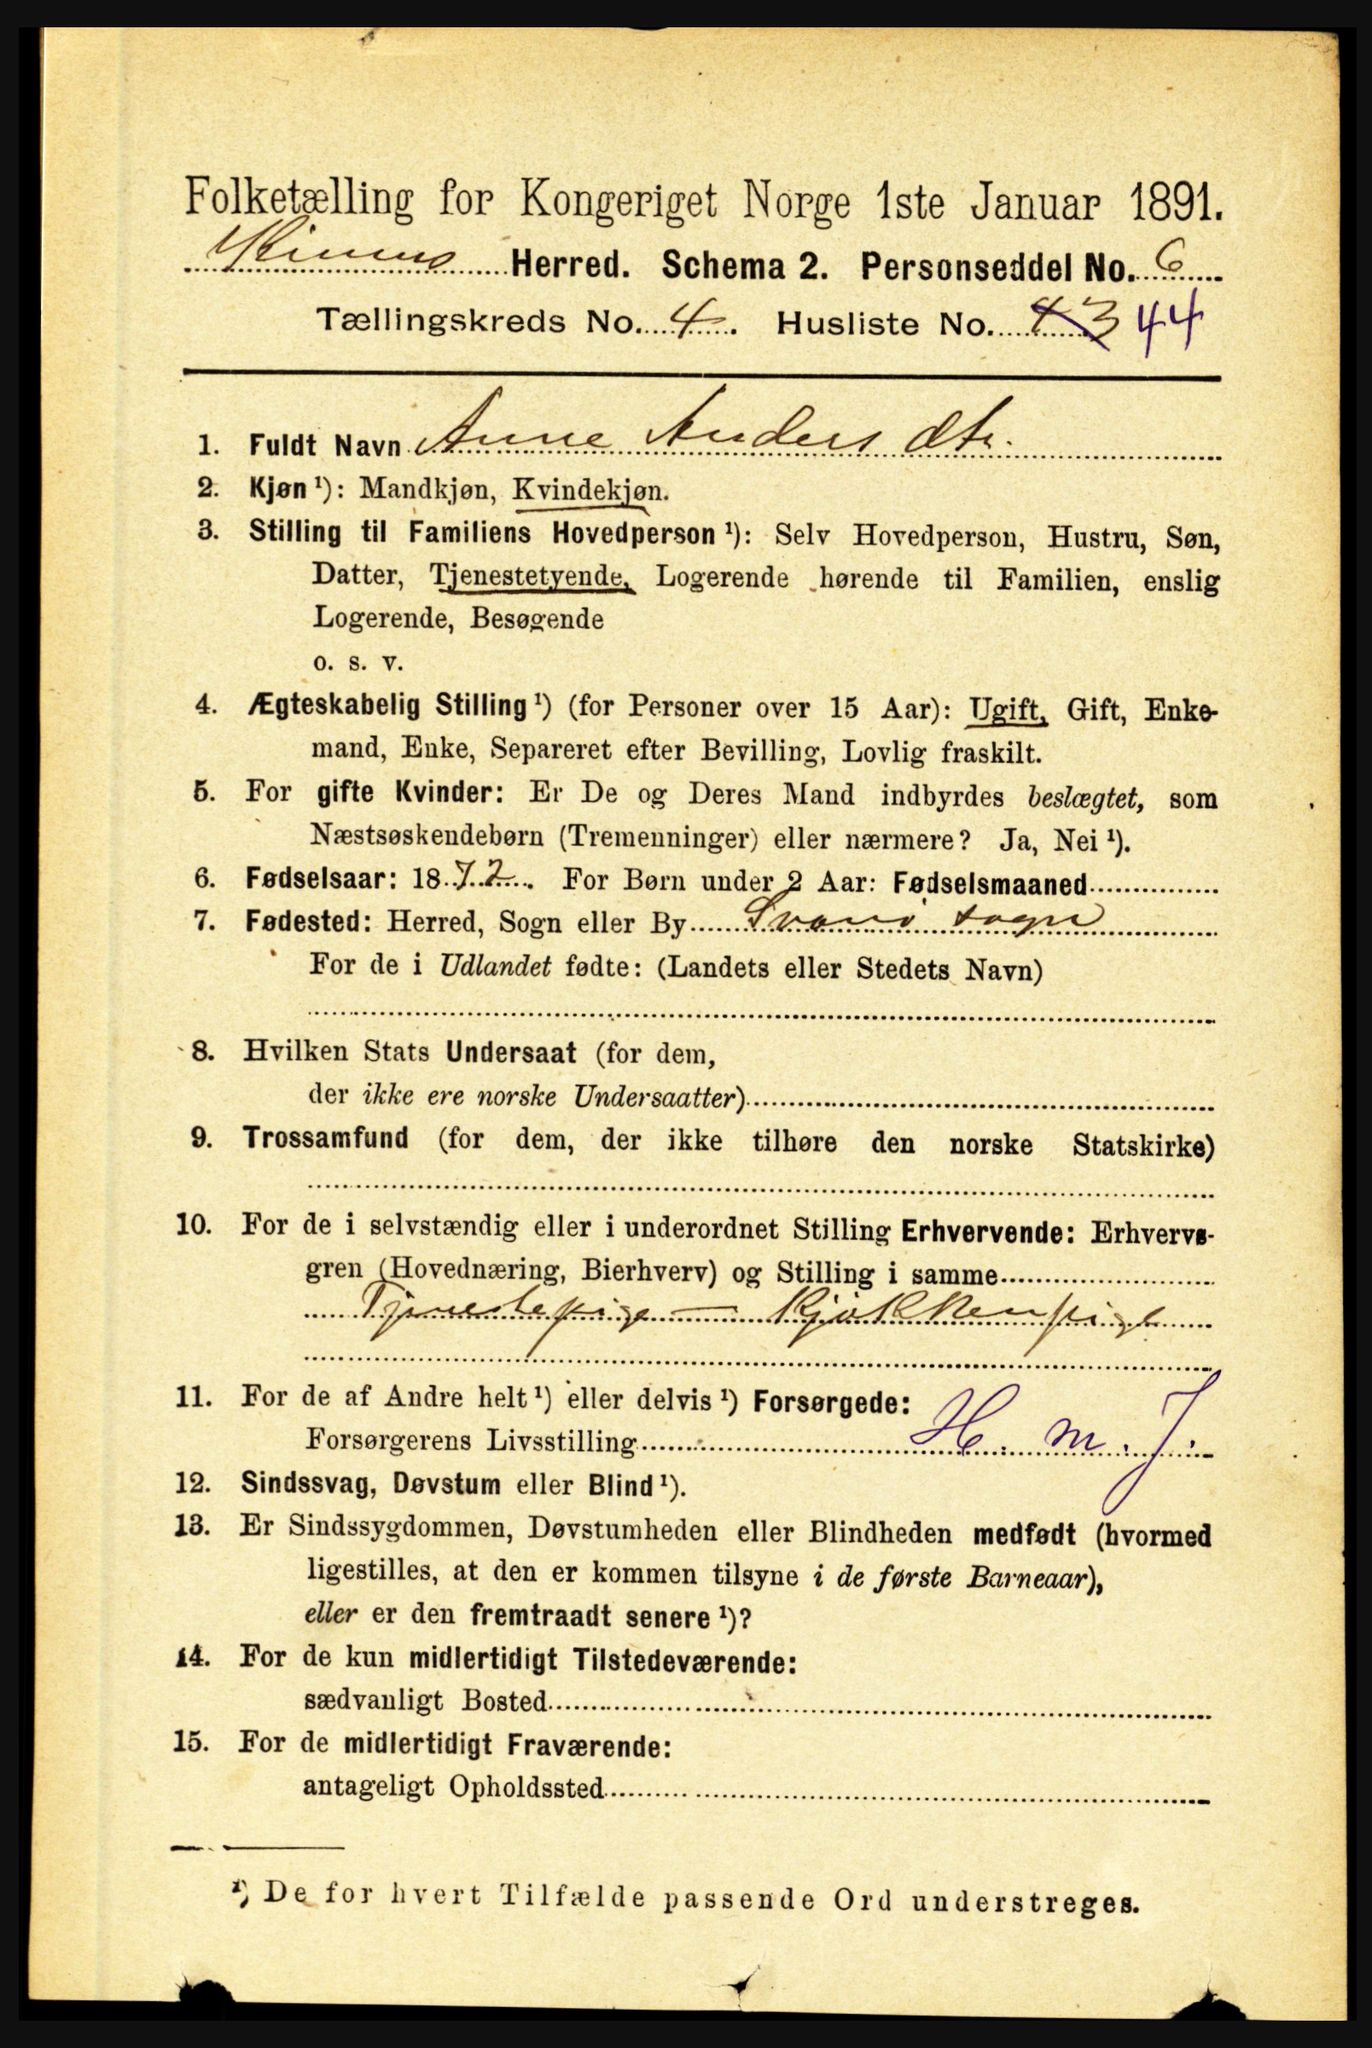 Folketælling for Kongeriget Norge 1ste Januar 1891.
Kinns Herred. Schema 2. Personseddel No. 6
Tællingskreds No. 4. Husliste No. 43 44
1. Fuldt Navn Anne Anders dtr.
2. Kjøn ¹): Mandkjøn, Kvindekjøn.
3. Stilling til Familiens Hovedperson ¹): Selv Hovedperson, Hustru, Søn,
Datter, Tjenestetyende, Logerende hørende til Familien, enslig
Logerende, Besøgende
o. s. v.
4. Ægteskabelig Stilling ¹) (for Personer over 15 Aar): Ugift, Gift, Enke-
mand, Enke, Separeret efter Bevilling, Lovlig fraskilt.
5. For gifte Kvinder: Er De og Deres Mand indbyrdes beslægtet, som
Næstsøskendebørn (Tremenninger) eller nærmere? Ja, Nei ¹).
6. Fødselsaar: 1872. For Børn under 2 Aar: Fødselsmaaned
7. Fødested: Herred, Sogn eller By Svanø sogn
For de i Udlandet fødte: (Landets eller Stedets Navn)
8. Hvilken Stats Undersaat (for dem,
der ikke ere norske Undersaatter)
9. Trossamfund (for dem, der ikke tilhøre den norske Statskirke)
10. For de i selvstændig eller i underordnet Stilling Erhvervende: Erhvervs-
gren (Hovednæring, Bierhverv) og Stilling i samme
Tjenestepige — Kjøkkenpige
11. For de af Andre helt ¹) eller delvis ¹) Forsørgede:
Forsørgerens Livsstilling H. m. J.
12. Sindssvag, Døvstum eller Blind ¹).
13. Er Sindssygdommen, Døvstumheden eller Blindheden medfødt (hvormed
ligestilles, at den er kommen tilsyne i de første Barneaar),
eller er den fremtraadt senere ¹)?
14. For de kun midlertidigt Tilstedeværende:
sædvanligt Bosted
15. For de midlertidigt Fraværende:
antageligt Opholdssted
¹) De for hvert Tilfælde passende Ord understreges.